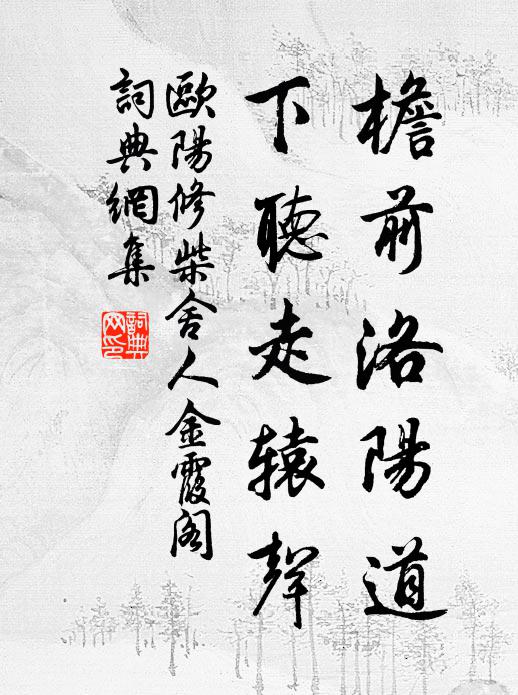 檐前洛陽道
下聽走轅聲
歐陽修柴舍人金霞閣
詞典網集
詞典網印